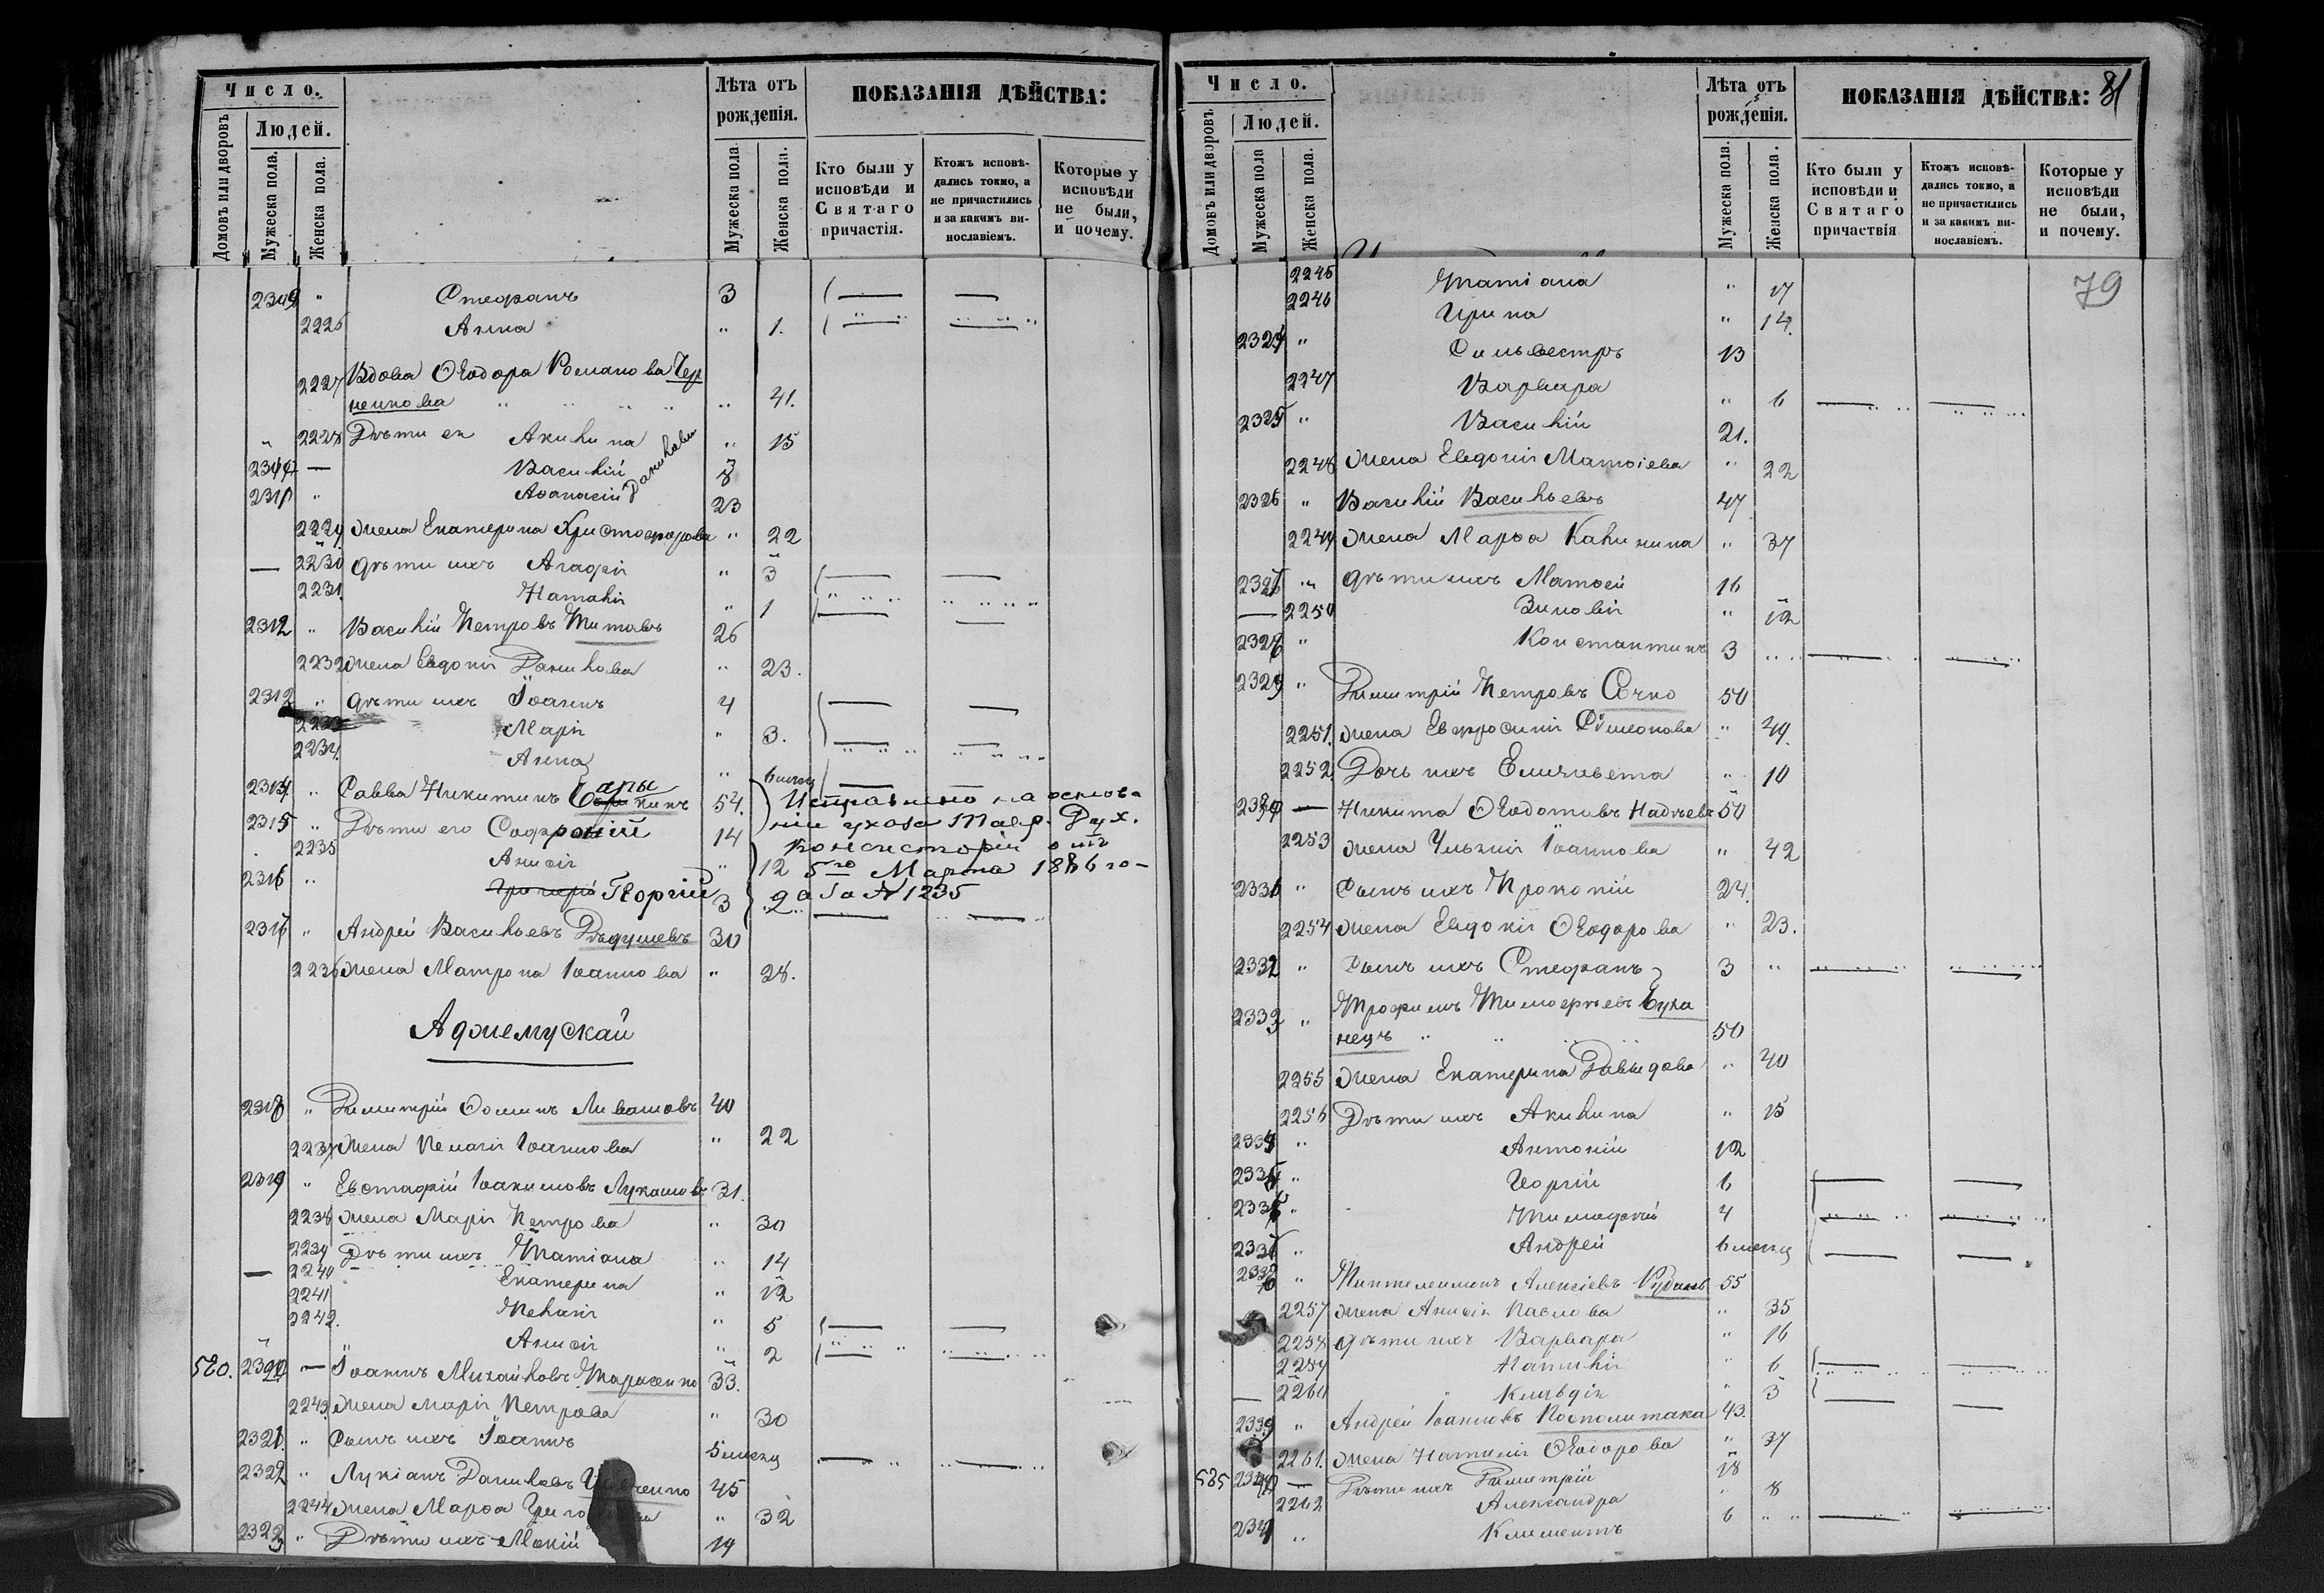 Число.
Людей.
Домовъ или дворовъ
Мужеска пола.
Женска пола.
Лѣта отъ
рожденія.
Мужеска пола
Женска пола.
ПОКАЗАНІЯ ДѢЙСТВА:
Кто были у
исповѣди и
Святаго
причастія.
Ктожъ исповѣ-
дались токмо, а
не причастились
и за какимъ ви-
нославіемъ.
Которые у
исповѣди
не были,
и почему.
2309 " Стефанъ 3
2226 Анна " 1.
2227 Вдова Ѳеодора Романова Чер
ненкова " 41.
" 2228 Дѣти ея Акилина " 15
— Василій Данилови 8
" Аѳанасій 23
2229 жена Екатерина Христофорова " 22
— 2230 дѣти ихъ Агафія " 3
2231. Наталія " 1
2312 " Василій Петровъ Титовъ 26
2232 жена Евдокія Данилова " 23.
" дѣти ихъ Іоаннъ 4
2233 Марія " 3.
2234. Анна " 6 мѣсяц
2314. " Савва Никитинъ 54.
2315 " Дѣти его Софроній 14
2235 Анисія " 12
2316 " Григорій Георгій 3
Исправлено на основа
ніи указа Тавр. Дух.
Консисторіи отъ
5го Марта 1886 го-
да за № 1235
2317 " Андрей Васильевъ Дѣдушевъ 30
2236 жена Матрона Іоаннова " 28.
Аджемускай
2318 " Димитрій Ѳоминъ Ливашовъ 40
2237 жена Пелагія Іоаннова " 22
2319 " Евстафій Іоакимовъ Лукашовъ 31.
2238 жена Марія Петрова " 30
2239 Дѣти ихъ Татіана " 14
— 2240 Екатерина " 12
2241 Пелагія " 5
2242. Анисія " 2
520. 2320 — Іоаннъ Михайловъ Тарасенко 33.
2243. жена Марія Петрова " 30
2321. " Сынъ ихъ Іоаннъ 5 мѣсяц
2322 " Лукіанъ Даниловъ 45
2244 жена Марѳа " 32
2323 " Дѣти ихъ Мокій 19
Число.
Людей.
Домовъ или дворовъ
Мужеска пола
Женска пола.
Лѣта отъ
рожденія.
Мужеска пола.
Женска пола.
ПОКАЗАНІЯ ДѢЙСТВА: 81
Кто были у
исповѣди и
Святаго
причастія
Ктожъ исповѣ-
дались токмо, а
не причастились
и за какимъ ви-
нославіемъ.
Которые у
исповѣди
не были,
и почему.
79
2245 Татіана " 17
2246 Ирина " 14.
2324 " Сильвестръ 13
2247 Варвара " 6
2325 " Василій 21.
2248 жена Евдокія Матѳіева " 22
2326 " Василій Васильевъ 47
2249 жена Марѳа Калинина " 37
2327 " дѣти ихъ Матѳей 16
— 2250 Зиновія " 12
2328 " Константинъ 3
2329 " Димитрій Петровъ Сочко 50
2251. жена Евфросинія Симеонова " 49.
2252. Дочь ихъ Елизавета " 10
2330 — Никита Ѳеодотовъ Надѣевъ 50
2253 жена Ульянія Іоаннова " 42
2331 " Сынъ ихъ Прокопій 24.
2254 жена Евдокія Ѳеодорова " 23.
2332 " Сынъ ихъ Стефанъ 3 "
2333 " Трофимъ Тимоѳеевъ Буха
нецъ " 50
2255 жена Екатерина Давыдова " 40
2256 Дѣти ихъ Акилина " 15
2334 " Антоній 12
2335 " Георгій 6
2336 " Тимоѳей 4
2337 " Андрей 6 мѣсяц
2338 " Пантелеимонъ Алексіевъ 55
2257 жена Анисія Павлова " 35
2258 дѣти ихъ Варвара " 16
2259 Наталія " 6
— 2260 Клавдія " 3
2339 " Андрей Іоанновъ Посполитака 43.
2261. жена Наталія Ѳеодорова " 37
525 2340 — Дѣти ихъ Димитрій 18
2262 Александра " 8
2341 " Климентъ 6 "